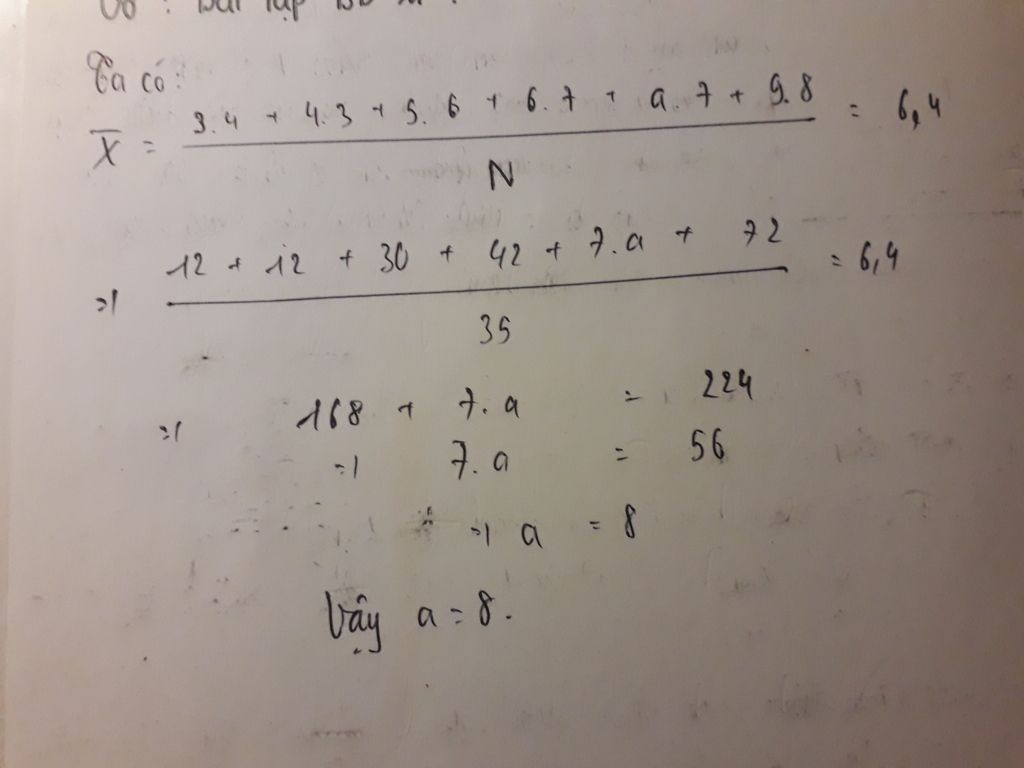 bài tập
Ta có:
X̄ = (3.4 + 4.3 + 5.6 + 6.7 + a.7 + 9.8) / N = 6,4
=> (12 + 12 + 30 + 42 + 7.a + 72) / 35 = 6,4
=> 168 + 7.a = 224
=> 7.a = 56
=> a = 8
Vậy a = 8.